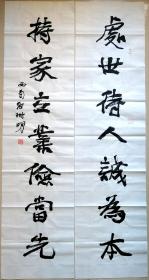 處世待人誠為本
持家立業儉當先